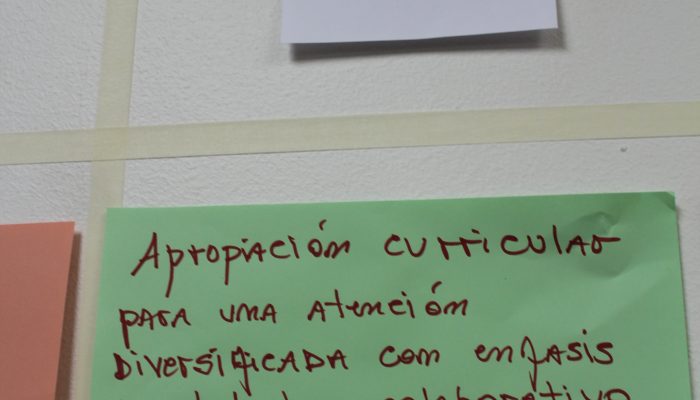 Apropiación curricular
para una atención
Diversificada con enfasis
colaborativo